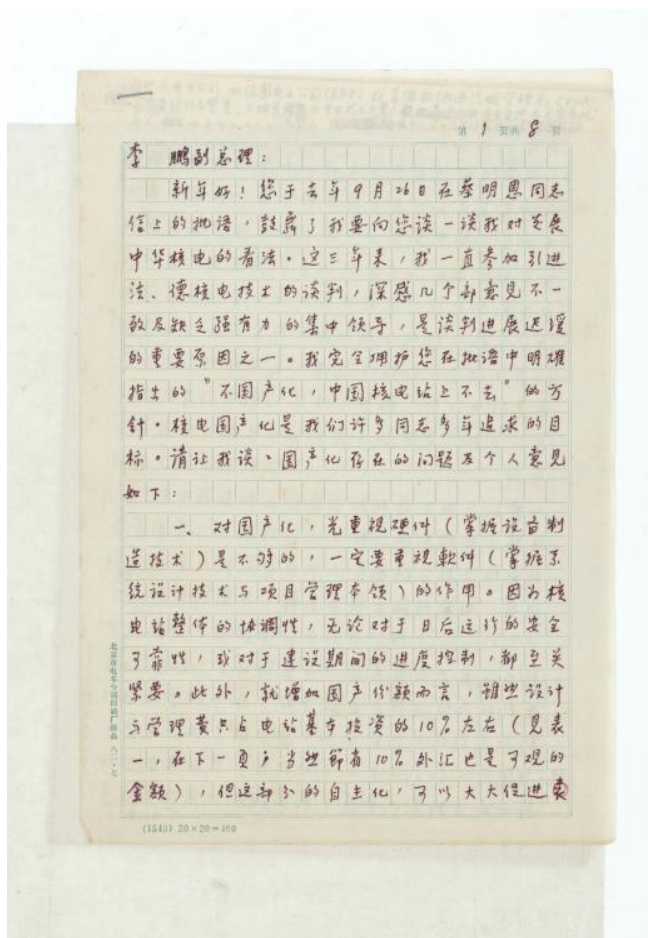 第 1 页共 8 页
李 鹏副总理：
新年好！您于去年9月26日在蔡明恩同志
信上的批语，鼓舞了我要向您谈一谈我对发展
中华核电的看法。这三年来，我一直参加引进
法、德核电技术的谈判，深感几个部意见不一
致及缺乏强有力的集中领导，是谈判进展迟缓
的重要原因之一。我完全拥护您在批语中明确
指出的“不国产化，中国核电站上不去”的方
针。核电国产化是我们许多同志多年追求的目
标。请让我谈谈国产化存在的问题及个人意见
如下：
一、对国产化，光重视硬件（掌握设备制
造技术）是不够的，一定要重视软件（掌握系
统设计技术与项目管理本领）的作用。因为核
电站整体的协调性，无论对于日后运行的安全
可靠性，或对于建设期间的进度控制，都至关
紧要。此外，就增加国产份额而言，虽然设计
与管理费只占电站基本投资的10%左右（见表
一，在下一页，当然节省10%外汇也是可观的
金额），但这部分的自主化，可以大大促进
北京市电车公司印刷厂出品 八二·七
(1543) 20×20=400